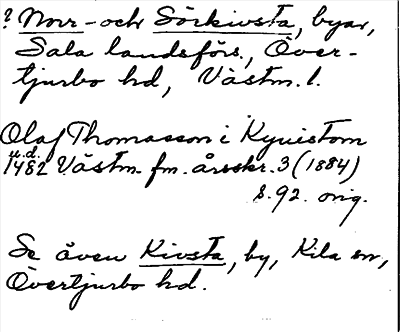 ? Norr- och Sörkivsta, byar,
Sala landsförs., Över-
tjurbo hd, Västm. l.
Olaf Thomasson i Kyuistom
u.d.
1482 Västm. fm. årsskr. 3 (1884)
s. 92. orig.
Se även Kivsta, by, Kila sn,
Övertjurbo hd.